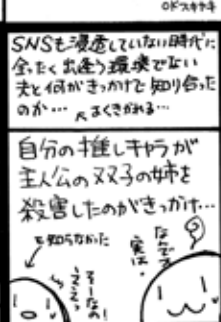 SNSも浸透していない時代に
全たく出逢う環境でない
夫と何がきっかけで知り合った
のか… よくきかれる…
自分の推しキャラが
主人公の双子の姉を
殺害したのがきっかけ…
と知らなかった
なんです
実は。
そーなの!